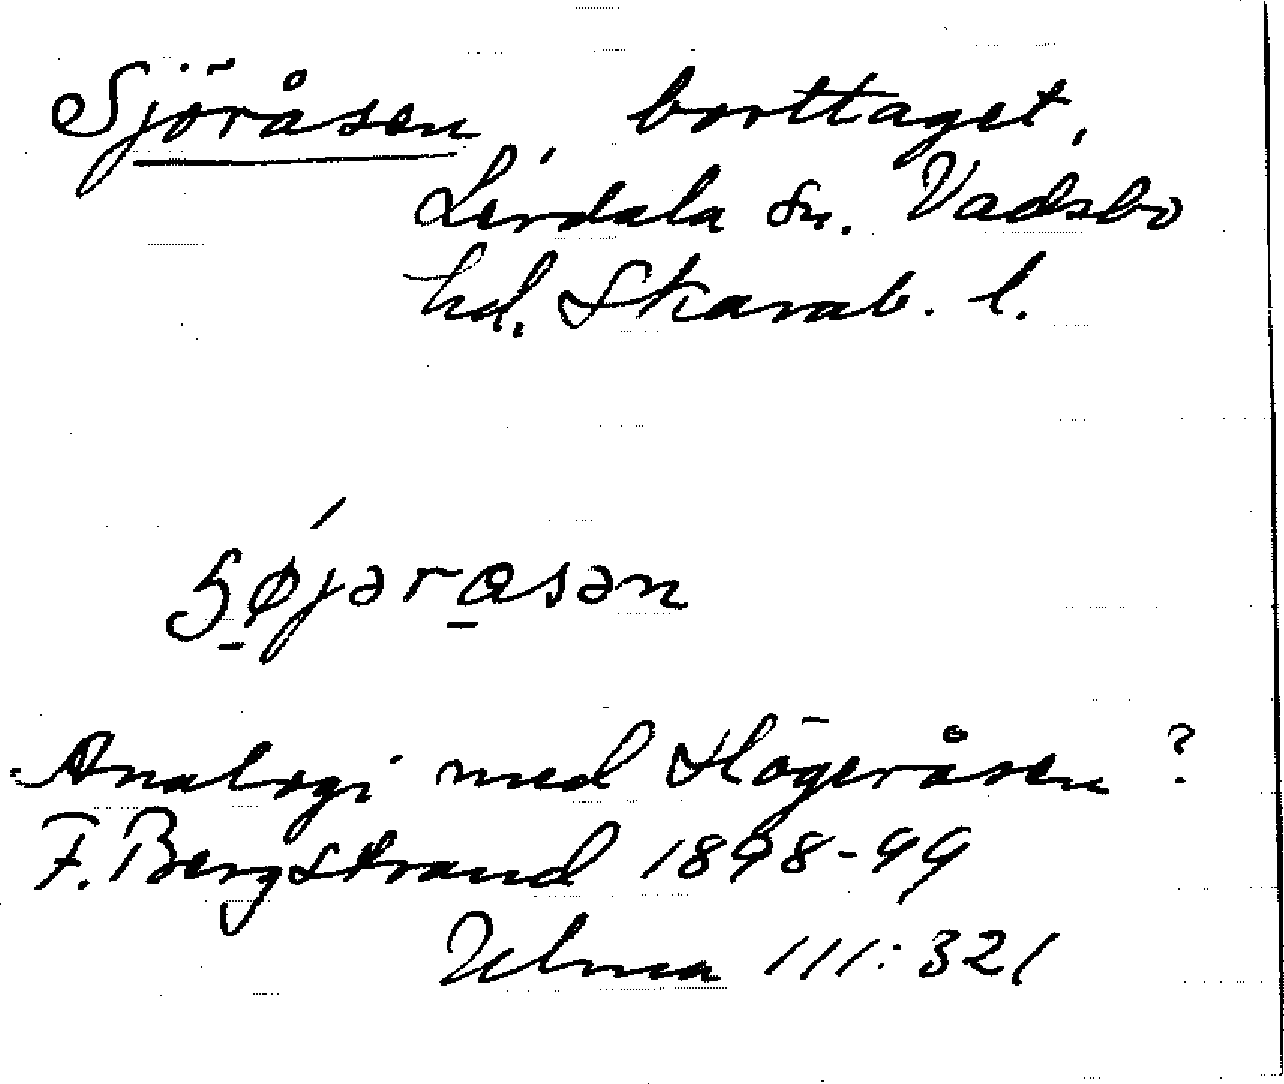 Sjöråsen, borttaget,
Lerdala sn. Vadsbo
hd. Skarab. l.
Analogi med Högeråsen ?
F. Bergstrand 1898-99
Ulma 111:321